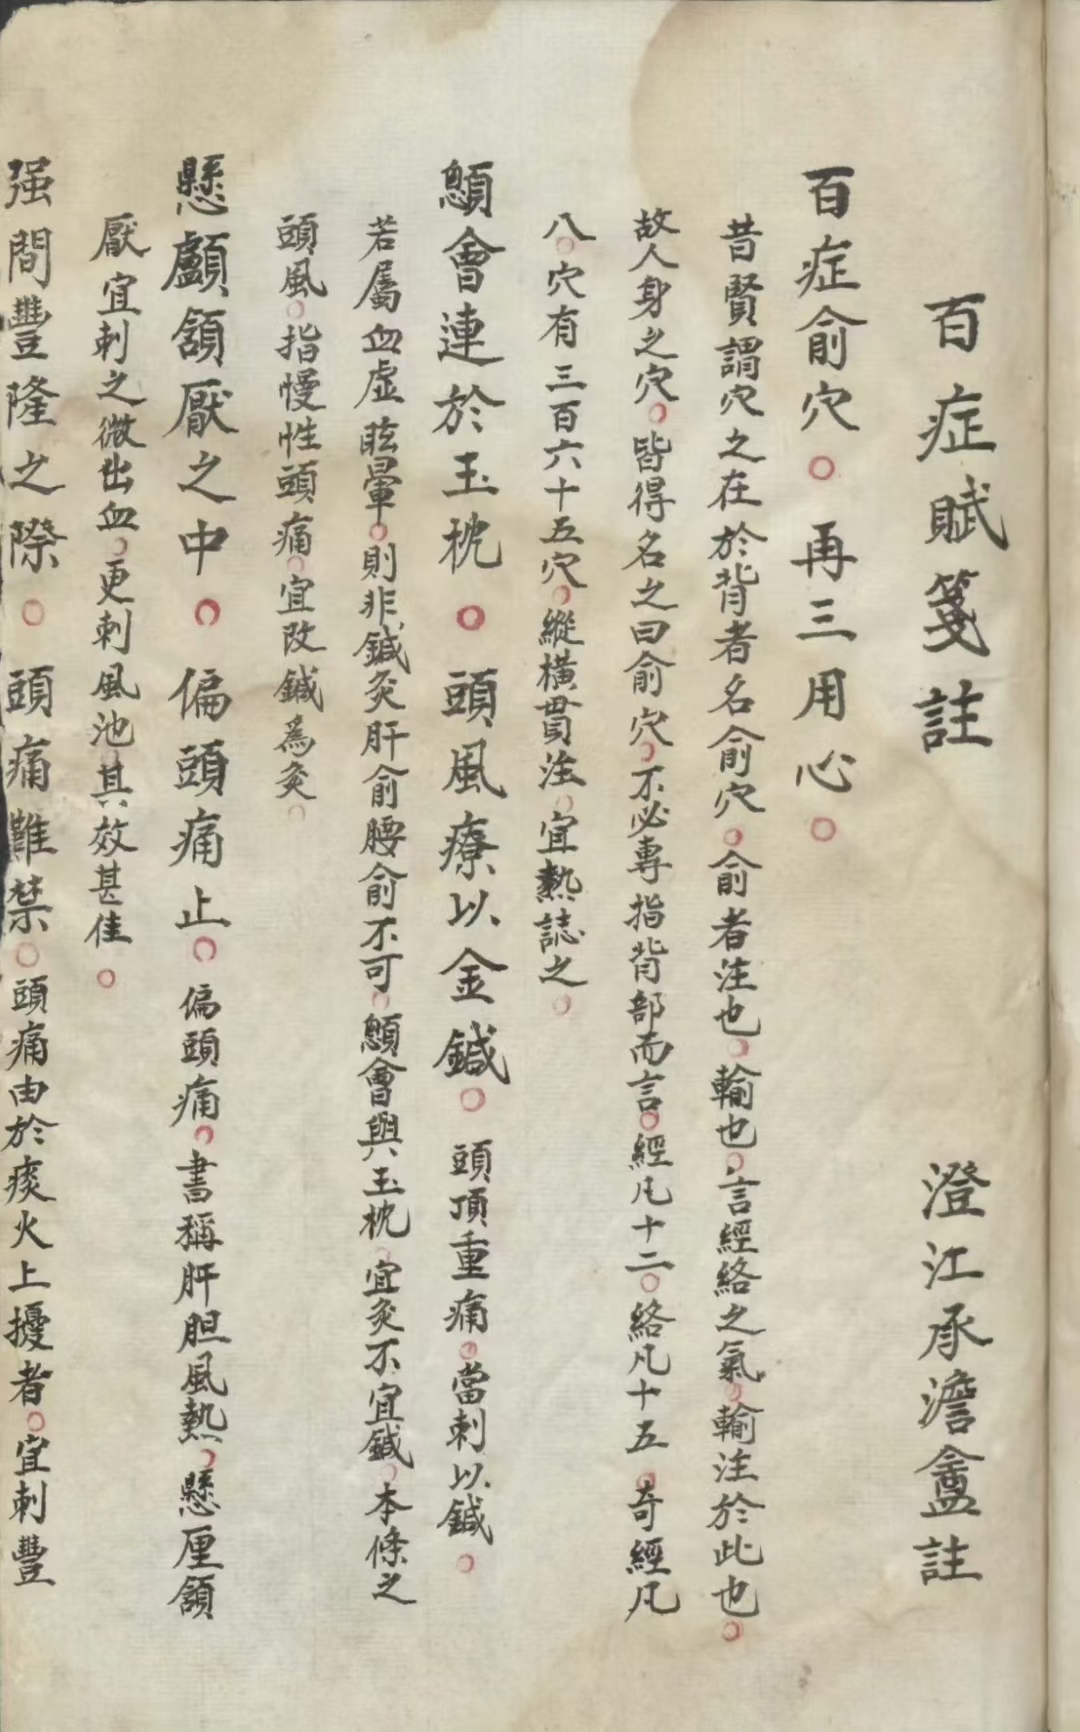 百症賦箋註 澄江承澹盦註
百症俞穴○再三用心○
昔賢謂穴之在於背者名俞穴○俞者注也○輸也○言經絡之氣○輸注於此也○
故人身之穴○皆得名之曰俞穴○不必專指背部而言○經凡十二○絡凡十五○奇經凡
八○穴有三百六十五穴○縱橫貫注○宜熱誌之○
顖會連於玉枕○頭風療以金鍼○頭頂重痛○當刺以鍼○
若屬血虛眩暈○則非鍼灸肝俞腰俞不可○顖會與玉枕○宜灸不宜鍼○本條之
頭風○指慢性頭痛○宜改鍼為灸○
懸顱頷厭之中○偏頭痛止○偏頭痛○書稱肝胆風熱○懸厘頷
厭宜刺之微出血○更刺風池其效甚佳○
强間豐隆之際○頭痛難禁○頭痛由於痰火上擾者○宜刺豐